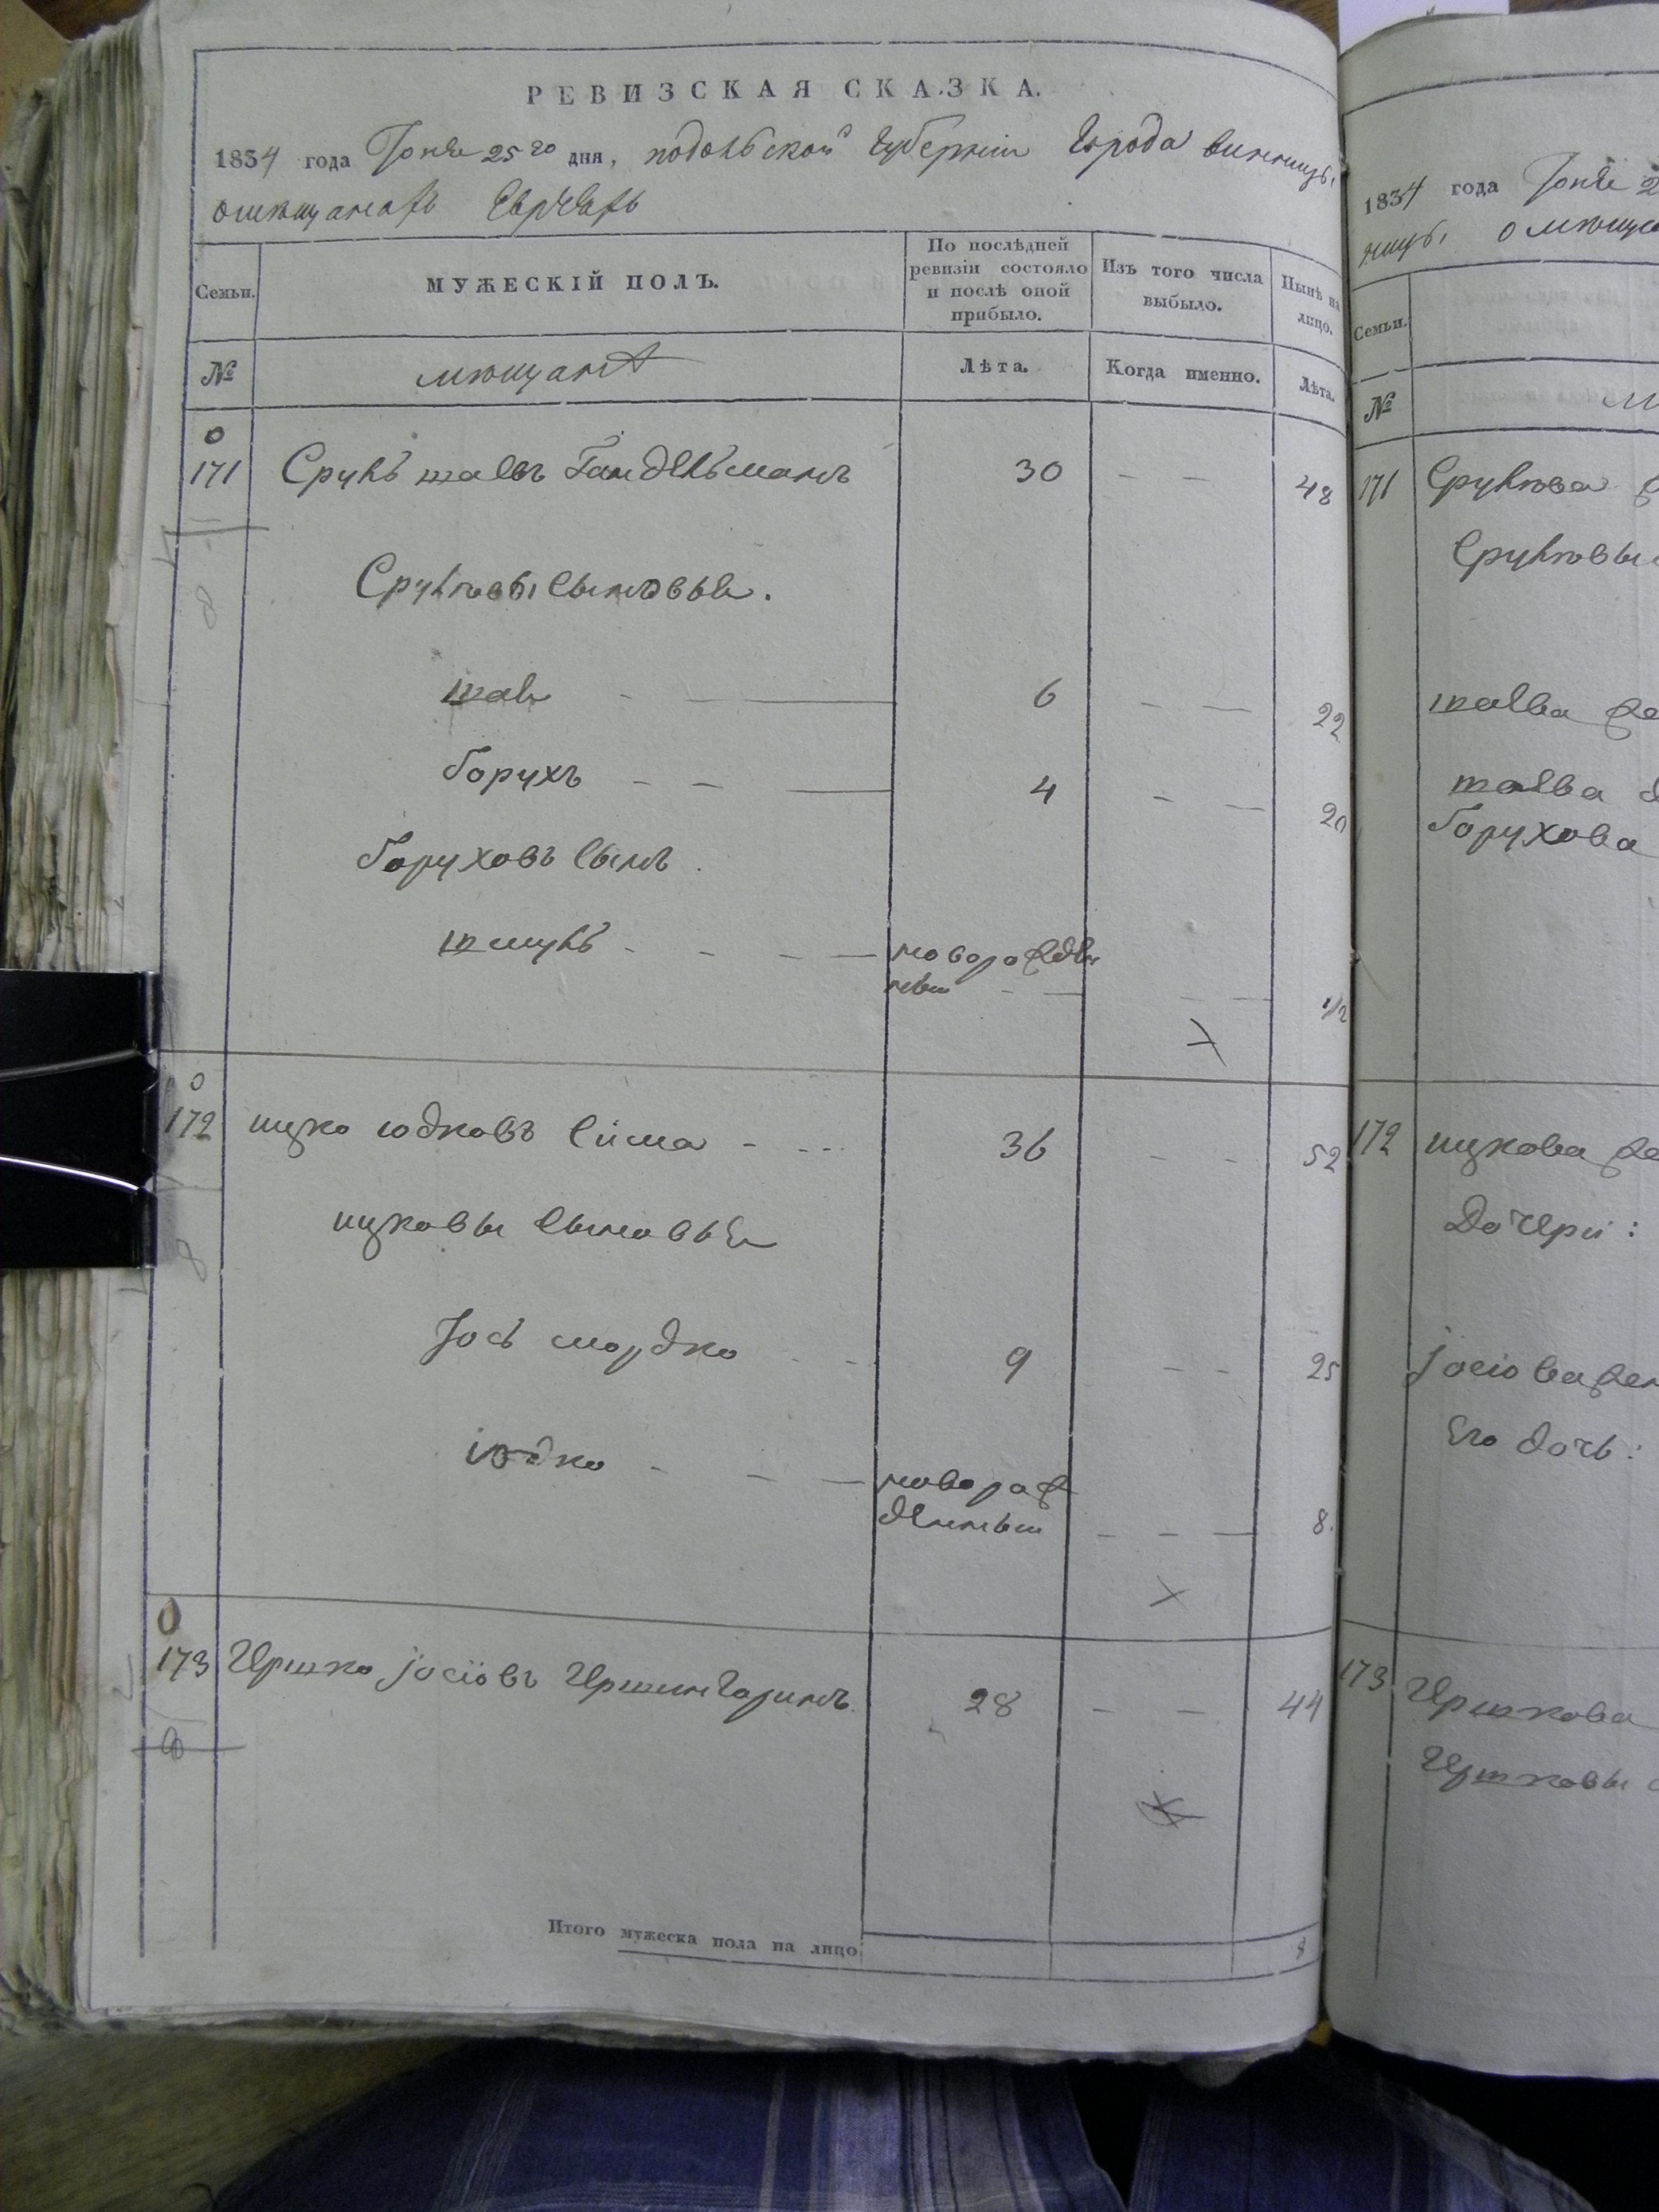 РЕВИЗСКАЯ СКАЗКА.
1834 года Іюня 25го дня, подольской губерніи города винницы
омѣщанахъ Евреяхъ
Семьи.
МУЖЕСКІЙ ПОЛЪ.
По послѣдней ревизіи состояло и послѣ оной прибыло.
Изъ того числа выбыло.
Нынѣ на лицо.
№
мѣщанъ
Лѣта.
Когда именно.
Лѣта.
171 Сруль Гандельманъ 30 — — 48
Срулевы сыновья.
6 — — 22
борухъ — — — 4 — — 20
боруховъ сынъ
шмуль - - - — новорожден
ный - — — — 1/2
172 ицко юдковъ - - - 36 — — 52
ицковы сыновья
Іось мордко - - 9 — — 25
юдко - — — новорож
денный — — — 8.
173 Гершко іосіовъ 28 — — 44
Итого мужеска пола на лицо 8
1834 года Іюня 2
ницы
Семьи.
№
171 Срулева
Срулевы
борухова
172 ицкова
дочери:
Его дочь:
173 Гершкова
Гершковы